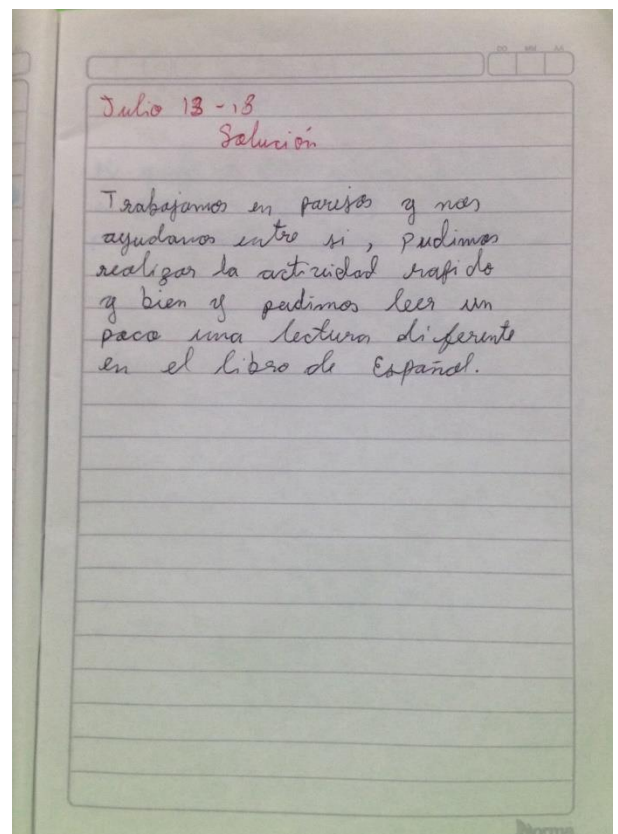 DD MM AA
Julio 13 -18
Solución
Trabajamos en parejas y nos
ayudanos entre si, pudimos
realizar la actividad rapido
y bien y pudimos leer un
poco una lectura diferente
en el libro de Español.
Norma